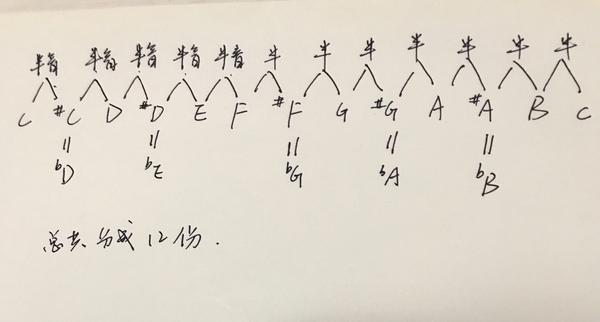 半音 半音 半音 半音 半音 半 半 半 半 半 半 半
C #C D #D E F #F G #G A #A B C
= = = = =
bD bE bG bA bB
总共分成12份.